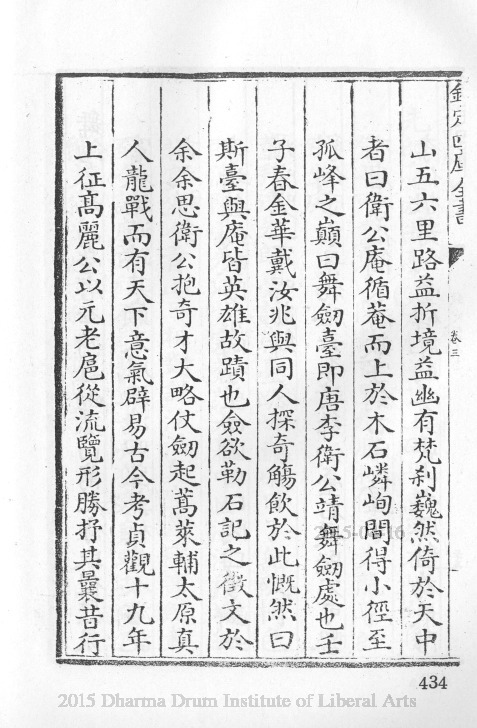 欽定四庫全書
卷三
山五六里路益折境益幽有梵刹巍然倚於天中
者曰衛公庵循菴而上於木石嶙峋間得小徑至
孤峰之巔曰舞劒臺即唐李衛公靖舞劒處也壬
子春金華戴汝兆與同人探奇觴飲於此慨然曰
斯臺與庵皆英雄故蹟也僉欲勒石記之徵文於
余余思衛公抱奇才大略仗劒起蒿萊輔太原真
人龍戰而有天下意氣辟易古今考貞觀十九年
上征髙麗公以元老扈從流覽形勝抒其曩昔行
434
2015 Dharma Drum Institute of Liberal Arts